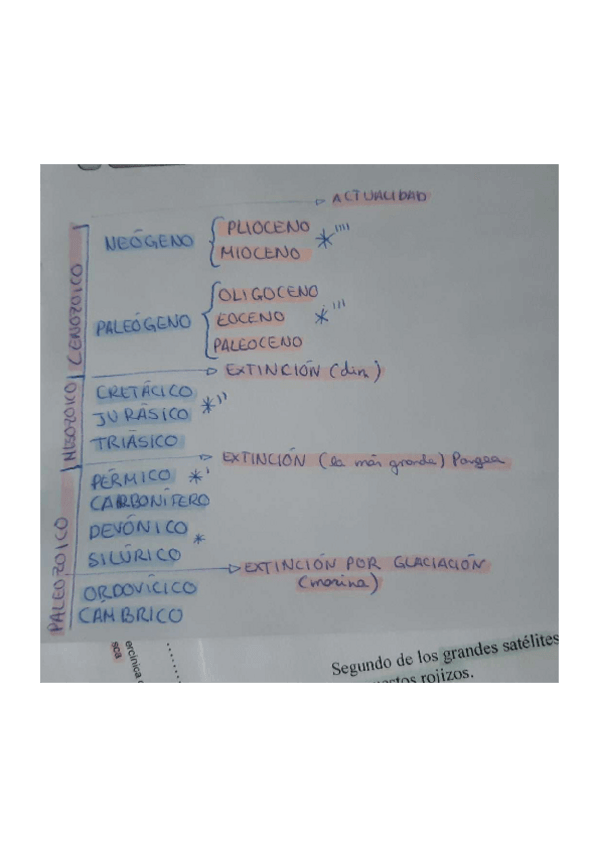 ACTUALIDAD
NEÓGENO { PLIOCENO *''''
MIOCENO
PALEÓGENO { OLIGOCENO
EOCENO *'''
PALEOCENO
CENOZOICO
EXTINCIÓN (din)
CRETÁCICO
JURÁSICO *''
TRIÁSICO
MESOZOICO
EXTINCIÓN (la más grande) Pangea
PÉRMICO *'
CARBONÍFERO
DEVÓNICO *
SILÚRICO
EXTINCIÓN POR GLACIACIÓN
(marina)
ORDOVÍCICO
CÁMBRICO
PALEOZOICO
ercínica
sca
Segundo de los grandes satélites
rojizos.